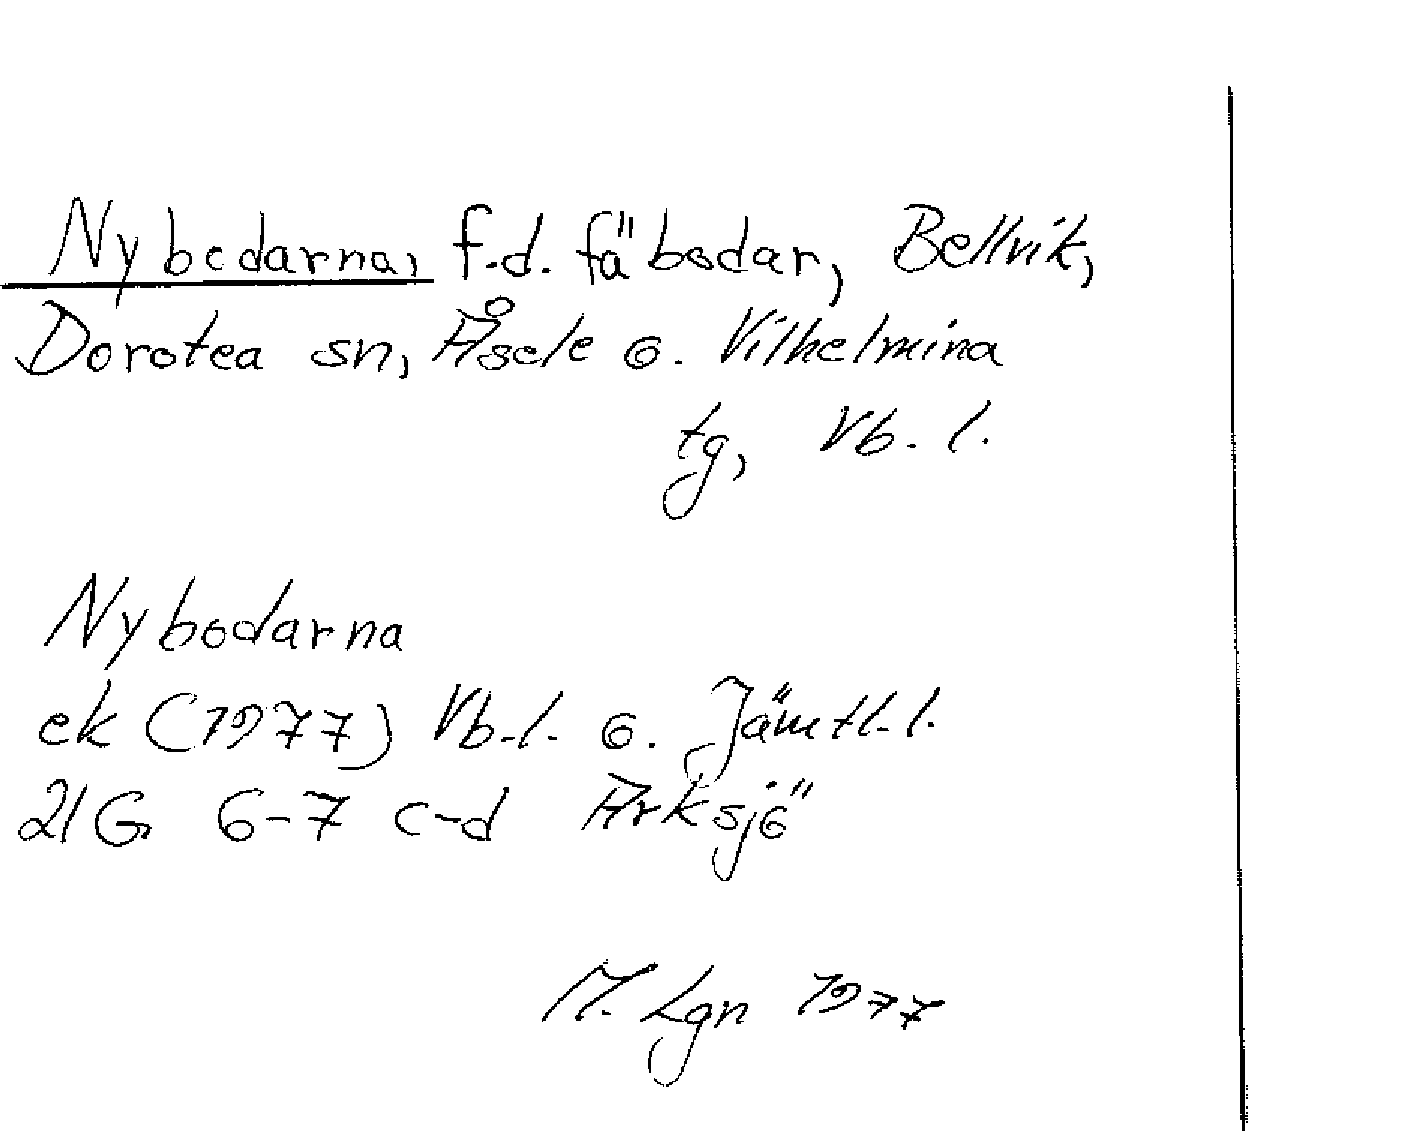 Nybodarna, f.d. fäbodar, Bellvik,
Dorotea sn, Åsele o. Vilhelmina
tg, Vb. l.
Nybodarna
ek (1977) Vb. l. o. Jämtl. l.
21G 6-7 c-d Arksjö
M. Lgn 1977